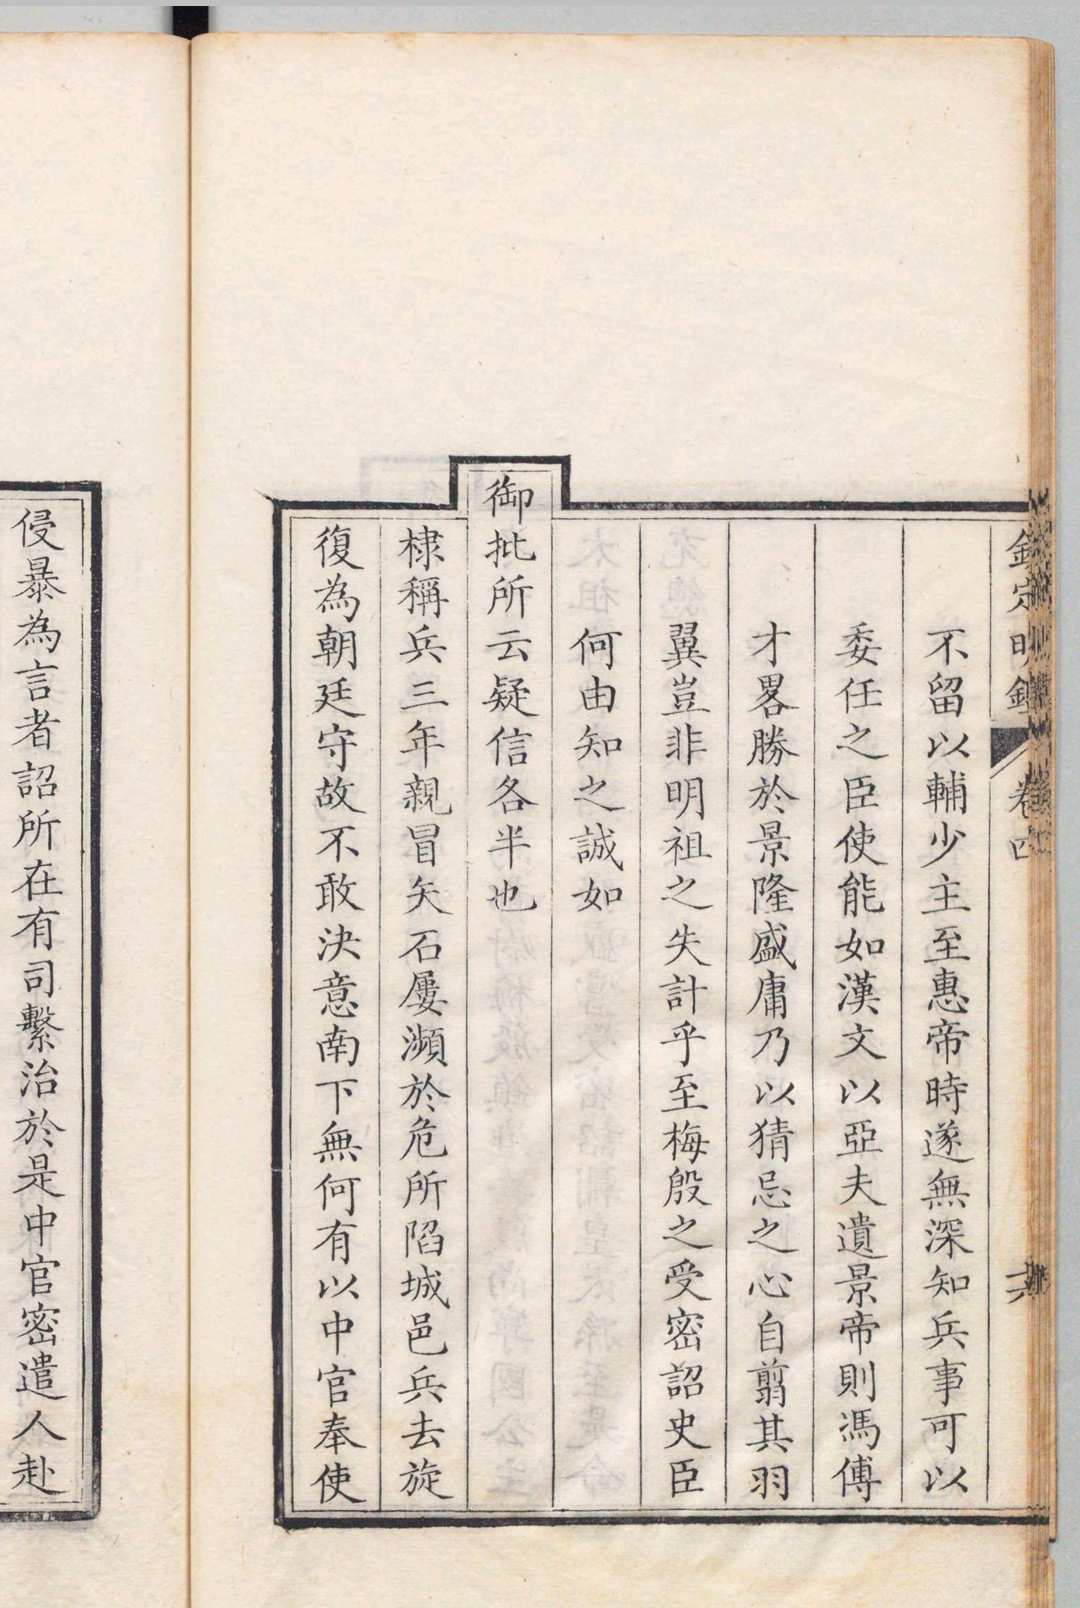 欽定明鑑 卷四 六
不留以輔少主至惠帝時遂無深知兵事可以
委任之臣使能如漢文以亞夫遺景帝則馮傅
才畧勝於景隆盛庸乃以猜忌之心自翦其羽
翼豈非明祖之失計乎至梅殷之受密詔史臣
何由知之誠如
御批所云疑信各半也
棣稱兵三年親冒矢石屢瀕於危所陷城邑兵去旋
復為朝廷守故不敢決意南下無何有以中官奉使
侵暴為言者詔所在有司繫治於是中官密遣人赴